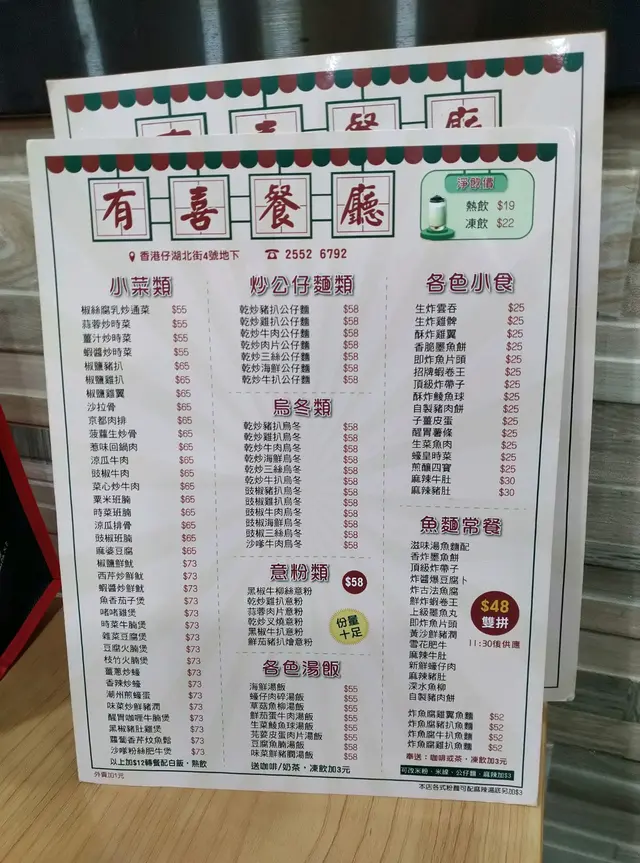 有喜餐廳
香港仔湖北街4號地下 ☎ 2552 6792
淨飲價
熱飲 $19
凍飲 $22
小菜類
椒絲腐乳炒通菜 $55
蒜蓉炒時菜 $55
薑汁炒時菜 $55
蝦醬炒時菜 $55
椒鹽豬扒 $65
椒鹽雞扒 $65
椒鹽雞翼 $65
沙拉骨 $65
京都肉排 $65
菠蘿生炒骨 $65
惹味回鍋肉 $65
涼瓜牛肉 $65
豉椒牛肉 $65
菜心炒牛肉 $65
粟米班腩 $65
時菜班腩 $65
涼瓜排骨 $65
豉椒班腩 $65
麻婆豆腐 $65
椒鹽鮮魷 $73
西芹炒鮮魷 $73
蝦醬炒鮮魷 $73
魚香茄子煲 $73
啫啫雞煲 $73
時菜牛腩煲 $73
雜菜豆腐煲 $73
豆腐火腩煲 $73
枝竹火腩煲 $73
薑蔥炒蠔 $73
香辣炒蠔 $73
潮州煎蠔蛋 $73
味菜炒鮮豬潤 $73
醒胃咖喱牛腩煲 $73
黑椒豬肚雞煲 $73
蘿蔔香芹炆魚鬆 $73
沙嗲粉絲肥牛煲 $73
以上加$12轉餐配白飯，熱飲
外賣加1元
炒公仔麵類
乾炒豬扒公仔麵 $58
乾炒雞扒公仔麵 $58
乾炒牛肉公仔麵 $58
乾炒肉片公仔麵 $58
乾炒三絲公仔麵 $58
乾炒海鮮公仔麵 $58
乾炒牛扒公仔麵 $58
烏冬類
乾炒豬扒烏冬 $58
乾炒雞扒烏冬 $58
乾炒牛肉烏冬 $58
乾炒海鮮烏冬 $58
乾炒三絲烏冬 $58
乾炒牛扒烏冬 $58
豉椒豬扒烏冬 $58
豉椒雞扒烏冬 $58
豉椒牛肉烏冬 $58
豉椒海鮮烏冬 $58
豉椒三絲烏冬 $58
沙嗲牛肉烏冬 $58
意粉類
$58
黑椒牛柳絲意粉
乾炒雞扒意粉
蒜蓉肉片意粉
乾炒叉燒意粉
黑椒牛扒意粉
鮮茄豬扒燴意粉
份量十足
各色湯飯
海鮮湯飯 $55
蠔仔肉碎湯飯 $55
草菇魚柳湯飯 $55
鮮茄蛋牛肉湯飯 $55
生菜鯪魚球湯飯 $55
芫荽皮蛋肉片湯飯 $55
豆腐魚腩湯飯 $58
味菜鮮豬潤湯飯 $58
送咖啡/奶茶，凍飲加3元
各色小食
生炸雲吞 $25
生炸雞髀 $25
酥炸雞翼 $25
香脆墨魚餅 $25
即炸魚片頭 $25
招牌蝦卷王 $25
頂級炸帶子 $25
酥炸鯪魚球 $25
自製豬肉餅 $25
子薑皮蛋 $25
醒胃薯條 $25
生菜魚肉 $25
蠔皇時菜 $25
煎釀四寶 $25
麻辣牛肚 $30
麻辣豬肚 $30
魚麵常餐
滋味湯魚麵配
香炸墨魚餅
頂級炸帶子
炸醬爆豆腐卜
炸古法魚腐
鮮炸蝦卷王
上級墨魚丸
即炸魚片頭
黃沙鮮豬潤
雪花肥牛
麻辣牛肚
新鮮蠔仔肉
麻辣豬肚
深水魚柳
自製豬肉餅
$48
雙拼
11:30後供應
炸魚腐雞翼魚麵 $52
炸魚腐豬扒魚麵 $52
炸魚腐牛扒魚麵 $52
炸魚腐雞扒魚麵 $52
奉送：咖啡或茶，凍飲加3元
可改米粉、米線、公仔麵、麻辣加$3
本店各式粉麵可配麻辣湯底另加$3